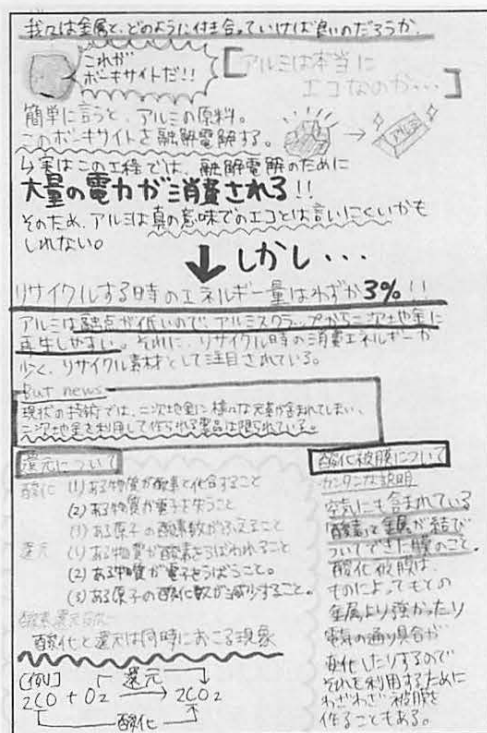 我々は金属と、どのように付き合っていけば良いのだろうか。
これが
ボーキサイトだ!!
[アルミは本当に
エコなのか…]
簡単に言うと、アルミの原料。
このボーキサイトを融解電解する。
アルミ
↳実はこの工程では、融解電解のために
大量の電力が消費される!!
そのため、アルミは真の意味でのエコとは言いにくいかも
しれない。
↓しかし…
リサイクルする時のエネルギー量はわずか3%!!
アルミは融点が低いので、アルミスクラップから二次地金に
再生しやすい。それに、リサイクル時の消費エネルギーが
少く、リサイクル素材として注目されている。
But news
現状の技術では、二次地金に様々な元素が含まれてしまい、
二次地金を利用して作られる製品は限られている。
還元について
酸化 (1)ある物質が酸素と化合すること
(2)ある物質が電子を失うこと
(3)ある原子の酸化数がふえること
還元 (1)ある物質が酸素をうばわれること
(2)ある物質が電子をうばうこと。
(3)ある原子の酸化数が減少すること。
酸化還元
酸化と還元は同時におこる現象
[例] 還元
2CO + O2 → 2CO2
酸化
酸化被膜について
カンタンな説明
空気にも含まれている
酸素と金属が結び
ついてできた膜のこと。
酸化被膜は、
ものによってもとの
金属より強かったり
電気の通り具合が
変化したりするので
それを利用するために
わざわざ被膜を
作ることもある。